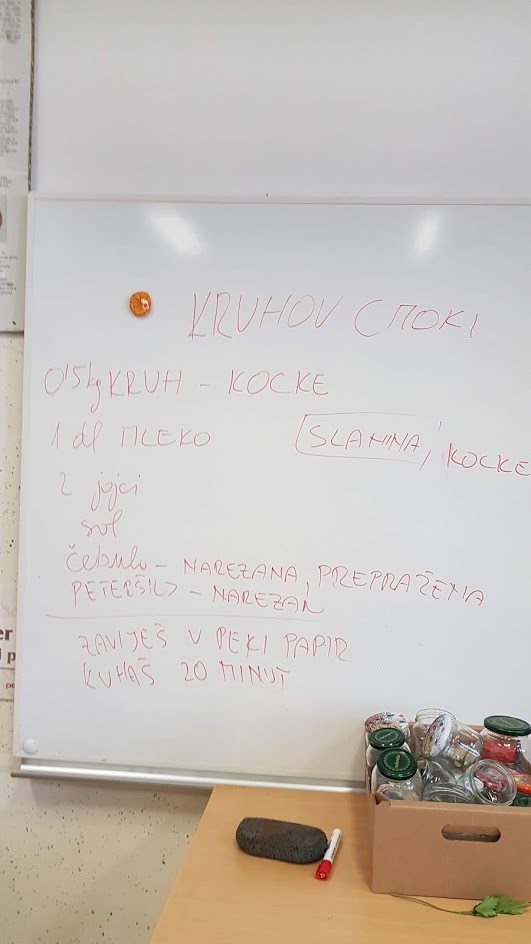 KRUHOV CMOKI
0'5 kg KRUH - KOCKE
1 dl MLEKO
SLANINA, KOCKE
2 jajci
sol
čebulo - NAREZANA, PREPRAŽENA
PETERŠILJ - NAREZAN
ZAVIJEŠ V PEKI PAPIR
KUHAŠ 20 MINUT